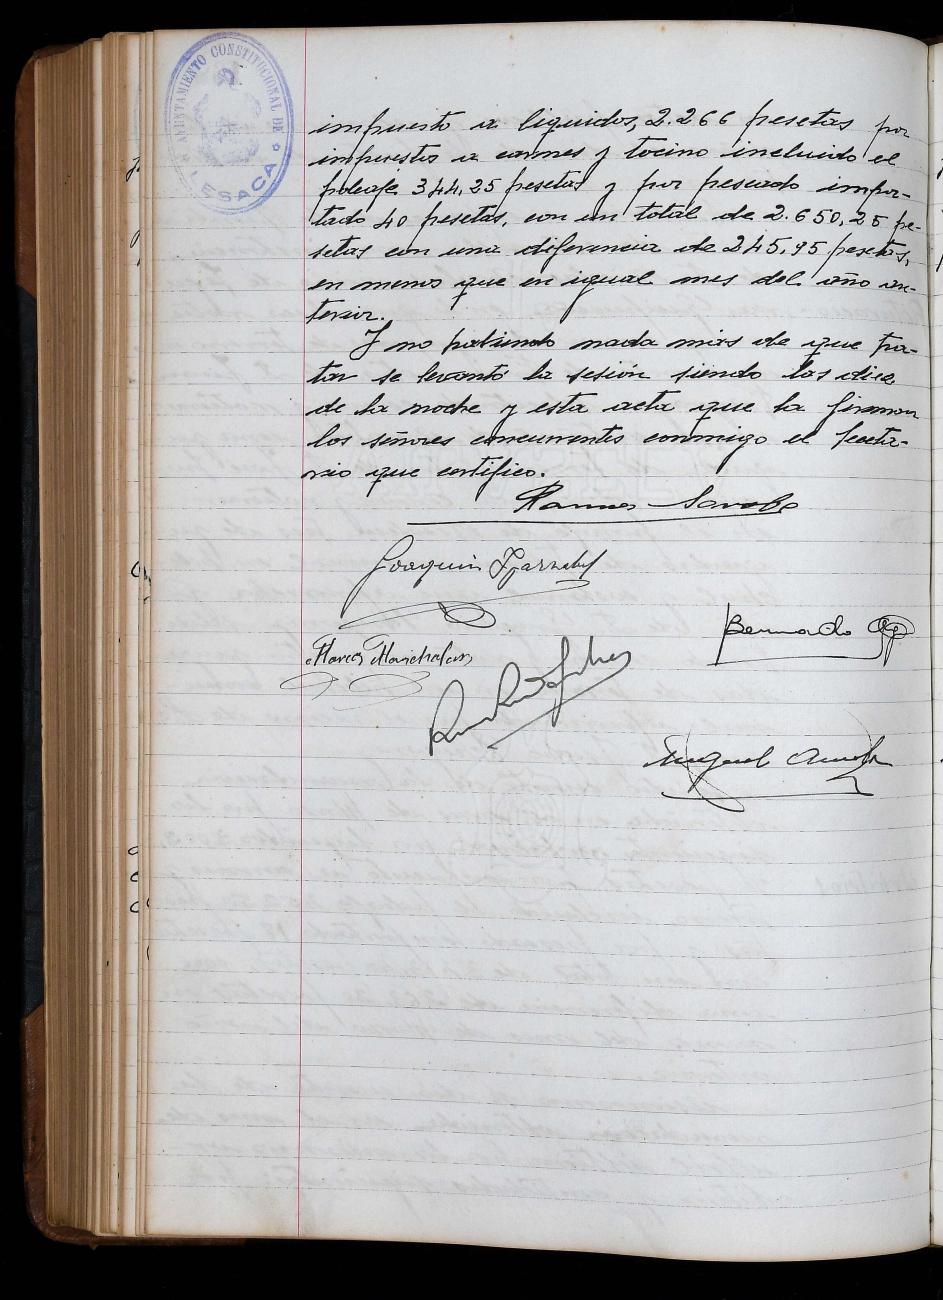 AYUNTAMIENTO CONSTITUCIONAL DE
LESACA
impuesto a liquidos, 2.266 pesetas por
impuestos a carnes y tocino incluido el
poleaje 344,25 pesetas y por pescado impor-
tado 40 pesetas, con un total de 2.650,25 pe-
setas con una diferencia de 245,95 pesetas,
en menos que en igual mes del año an-
terior.
Y no habiendo nada mas de que tra-
tar se levantó la sesión siendo las diez
de la noche y esta acta que la firman
los señores concurrentes conmigo el secreta-
rio que certifico.
Joaquin
Bernardo
Marcos Marichalar
Miguel